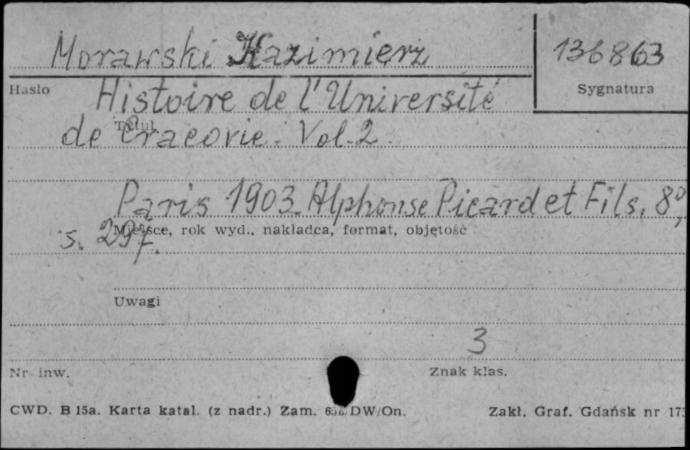 Morawski Kazimierz
136863
Hasło
Sygnatura
Histoire de l'Université
Tytuł
de Cracovie. Vol. 2.
Paris 1903. Alphonse Picard et Fils. 8º,
Miejsce, rok wyd., nakładca, format, objętość
s. 297.
Uwagi
3
Nr inw.
Znak klas.
CWD. B 15a. Karta katal. (z nadr.) Zam. DW/On.
Zakł. Graf. Gdańsk nr 173